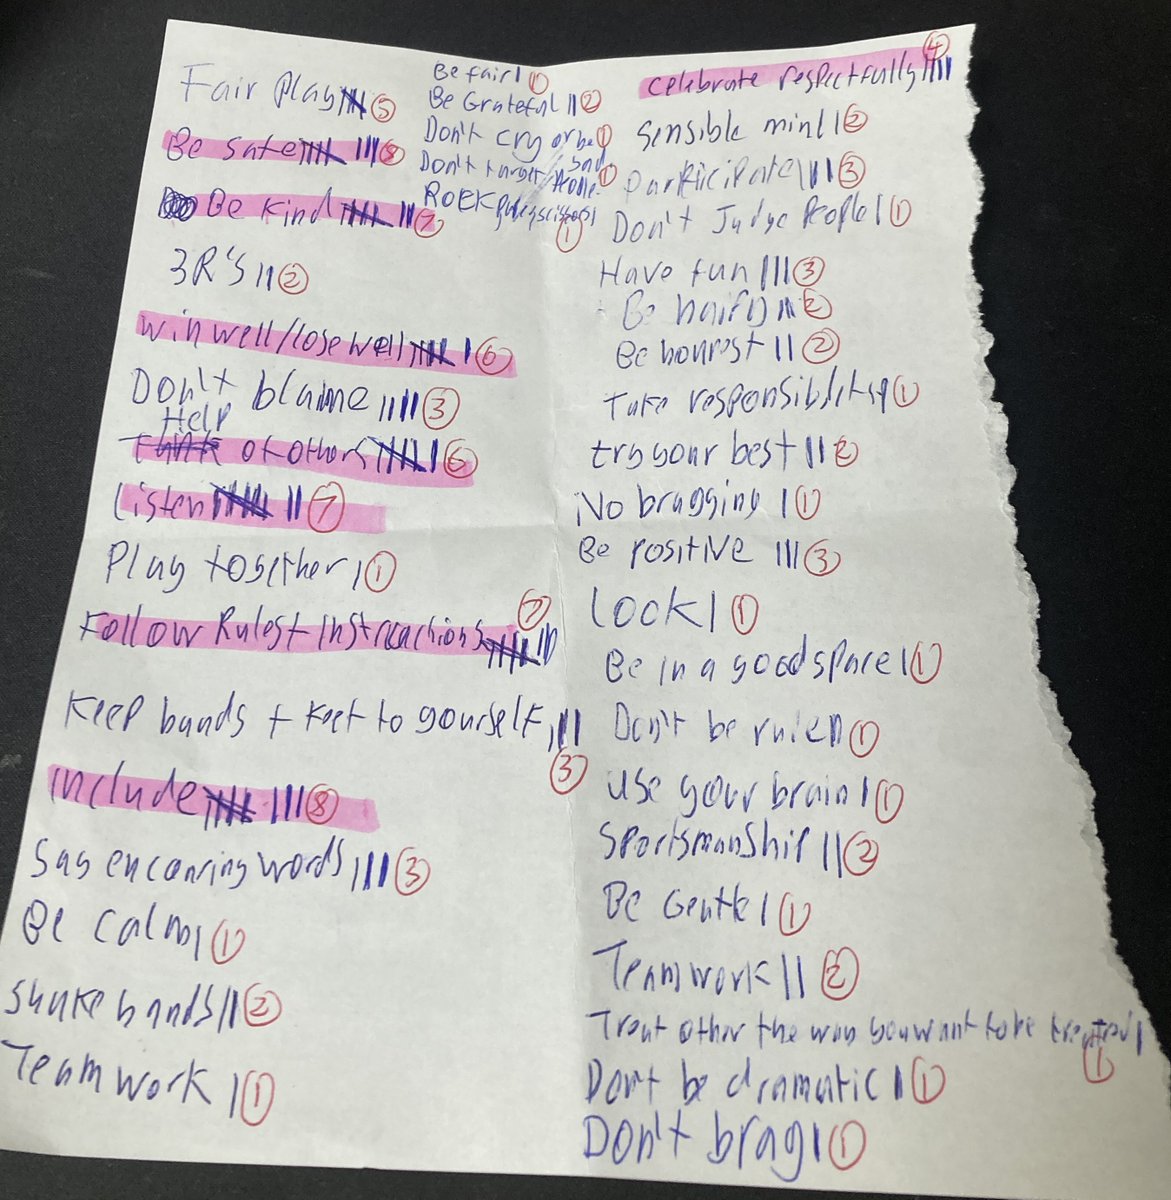 Fair Play 5
Be safe 8
Be kind 7
3R's 2
Win well/lose well 6
Don't blame 3
Help
think of others 6
Listen 7
Play together 1
Follow Rules + Instreachions 7
Keep hands + feet to yourself
3
include 8
Say encouring words 3
Be calm 1
shake hands 2
Teamwork 1
Be fair 1
Be Grateful 2
Don't cry or be 1
sad
Don't target People 1
Rock paper scissors
1
4
celebrate respectfully
Sensible mind 2
participate 3
Don't Judge People 1
Have fun 3
Be 2
Be honrest 2
Take responsiblity 1
try your best 2
No bragging 1
Be positive 3
Look 1
Be in a good space 1
Don't be rude 1
use your brain 1
Sportsmanship 2
Be Gentle 1
Teamwork 2
Treat other the way you want to be treated
1
Don't be dramatic 1
Don't brag 1